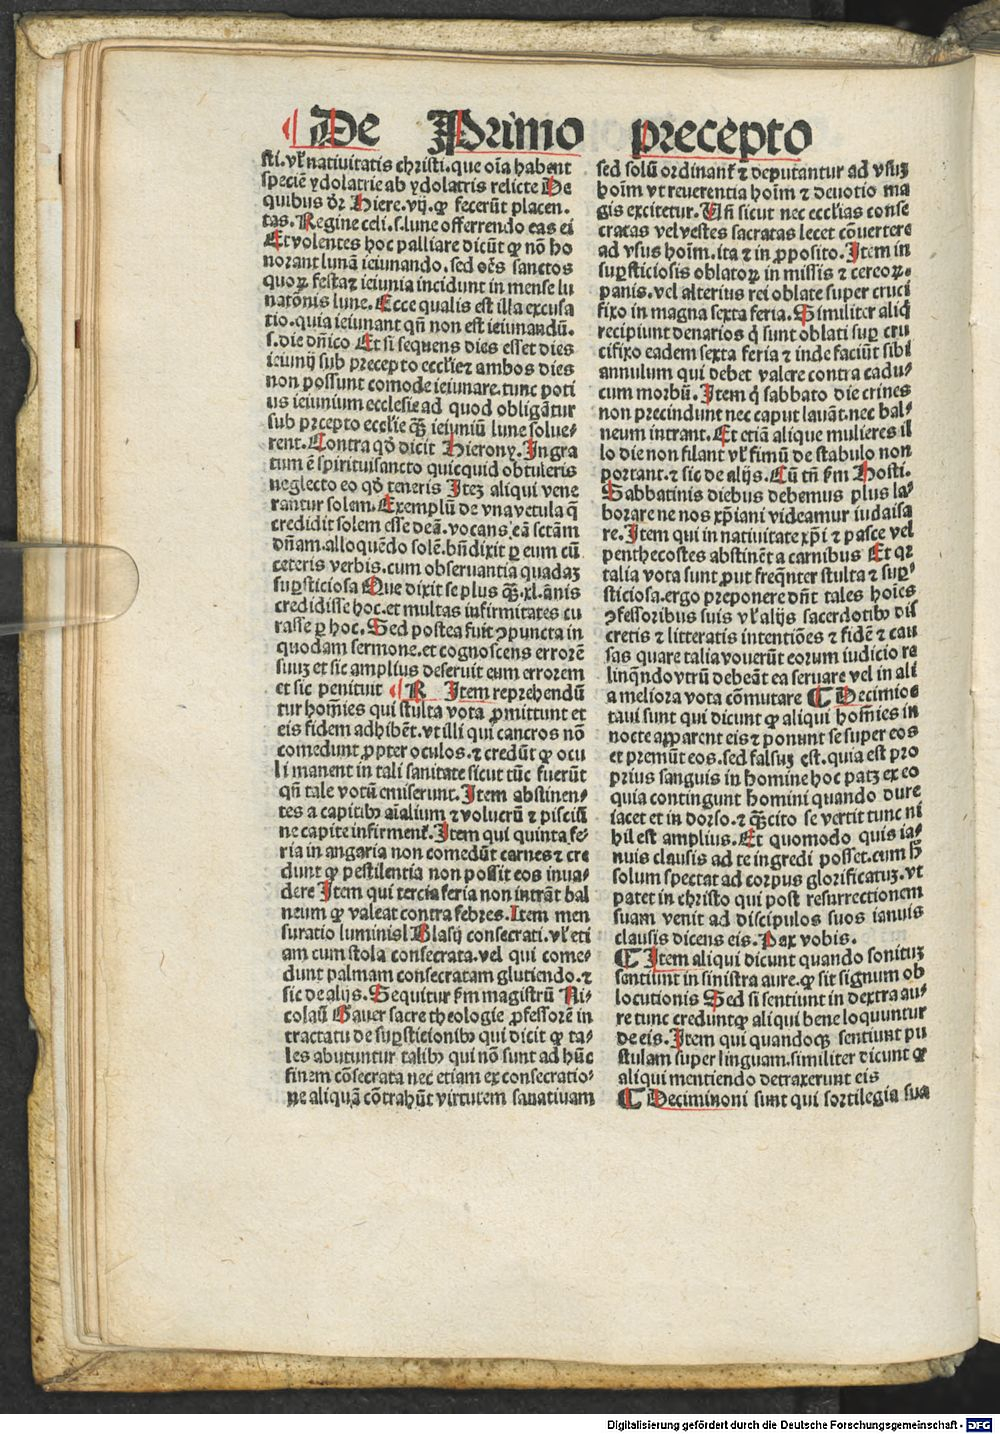 De Primo precepto
sti.vl̛ nativitatis christi.que oīa habent
speciē ydolatrie ab ydolatris relicte De
quibus dr̄ Hiere.vij.ꝙ fecerūt placen-
tas.Regine celi.s.lune offerendo eas ei
Et volentes hoc palliare dicūt ꝙ nō ho
norant lunā ieiunando.sed oēs sanctos
quoꝝ festa ⁊ ieiunia incidunt in mense lu
natōnis lune.Ecce qualis est illa excusa
tio.quia ieiunant qn̄ non est ieiunandū.
s.die dn̄ico Et si sequens dies esset dies
ieiunij sub precepto eccl'ie ⁊ ambos dies
non possunt comode ieiunare.tunc poti
us ieiunium ecclesie ad quod obligātur
sub p̄cepto eccl'ie qȝ̄ ieiuniū lune solue-
rent.Contra qd̄ dicit Hierony.Ingra
tum ē spirituisancto quicquid obtuleris
neglecto eo qd̄ teneris Iteȝ aliqui vene
rantur solem.Exemplū de vna vetula q̄
credidit solem esse deā.vocans eā sctām
dn̄am.alloquēdo solē.bn̄dixit ꝑ eum cū
ceteris verbis.cum obseruantia quadaȝ
suꝑsticiosa Que dixit se plus qȝ̄.xl.ānis
credidisse hoc.et multas infirmitates cu
rasse ꝑ hoc.Sed postea fuit ꝯpuncta in
quodam sermone.et cognoscens errorē
suuȝ et sic amplius deseruit eum errorem
et sic penituit ¶ R Item reprehendū
tur hoīnes qui stulta vota ꝓmittunt et
eis fidem adhibēt.vt illi qui cancros nō
comedunt ꝓpter oculos.⁊ credūt ꝙ ocu
li manent in tali sanitate sicut tūc fuerūt
qn̄ tale votū emiserunt.Item abstinen-
tes a capitibꝰ aīalium ⁊ volucrū ⁊ pisciū
ne capite infirment̛.Item qui quinta fe-
ria in angaria non comedūt carnes ⁊ cre
dunt ꝙ pestilentia non possit eos inua-
dere Item qui tercia feria non intrāt bal
neum ꝙ valeat contra febres.Item men
suratio luminis Blasij consecrati.vl̛ eti
am cum stola consecrata.vel qui come-
dunt palmam consecratam glutiendo.⁊
sic de alijs.Sequitur ẜm magistrū Ni-
colaū Gawer sacre theologie ꝓfessorē in
tractatu de suꝑsticionibꝰ qui dicit ꝙ ta-
les abutuntur talibꝰ qui nō sunt ad hūc
finem cōsecrata nec etiam ex consecratio-
ne aliquā cōtrahūt virtutem sanatiuam
sed solū ordinant̛ ⁊ deputantur ad vsuȝ
hoīm vt reuerentia hoīm ⁊ deuotio ma
gis excitetur.Vn̄ sicut nec eccl'ias conse
cratas vel vestes sacratas lecet cōuertere
ad vsus hoīm.ita ⁊ in ꝓposito.Item in
suꝑsticiosis oblatoꝝ in missis ⁊ cereoꝝ.
panis.vel alterius rei oblate super cruci
fixo in magna sexta feria.Similiter aliq̇
recipiunt denarios q̇ sunt oblati suꝑ cru
cifixo eadem sexta feria ⁊ inde faciūt sibi
annulum qui debet valere contra cadu-
cum morbū.Item q̇ sabbato die crines
non precindunt nec caput lauāt.nec bal-
neum intrant.Et etiā alique mulieres il
lo die non filant vl̛ fimū de stabulo non
portant.⁊ sic de alijs.Cū tn̄ ẜm Hosti.
Sabbatinis diebus debemus plus la-
borare ne nos xp̄iani videamur iudaisa
re.Item qui in natiuitate xp̄i ⁊ pasce vel
penthecostes abstinēt a carnibus Et qꝛ
talia vota sunt ꝓut freqn̄ter stulta ⁊ suꝑ-
sticiosa.ergo preponere dn̄t tales hoīes
ꝯfessoribus suis vl̛ alijs sacerdotibꝰ dis
cretis ⁊ litteratis intentiōes ⁊ fidē ⁊ cau
sas quare talia vouerūt eorum iudicio re
linqn̄do vtrū debeāt ea seruare vel in ali
a meliora vota cōmutare ¶ Decimioc
taui sunt qui dicunt ꝙ aliqui hoīnes in
nocte apparent eis ⁊ ponunt se super eos
et premūt eos.sed falsuȝ est.quia est pro
prius sanguis in homine hoc patȝ ex eo
quia contingunt homini quando dure
iacet et in dorso.⁊ qȝ̄cito se vertit tunc ni
hil est amplius.Et quomodo quis ia-
nuis clausis ad te ingredi posset.cum h̄
solum spectat ad corpus glorificatuȝ.vt
patet in christo qui post resurrectionem
suam venit ad discipulos suos ianuis
clausis dicens eis.Pax vobis.
¶ Item aliqui dicunt quando sonituȝ
sentiunt in sinistra aure.ꝙ sit signum ob
locutionis Sed si sentiunt in dextra au-
re tunc credunt ꝙ aliqui bene loquuntur
de eis.Item qui quandoqȝ sentiunt pu
stulam super linguam.similiter dicunt ꝙ
aliqui mentiendo detraxerunt eis
¶ Deciminoni sunt qui sortilegia sua
Digitalisierung gefördert durch die Deutsche Forschungsgemeinschaft - DFG